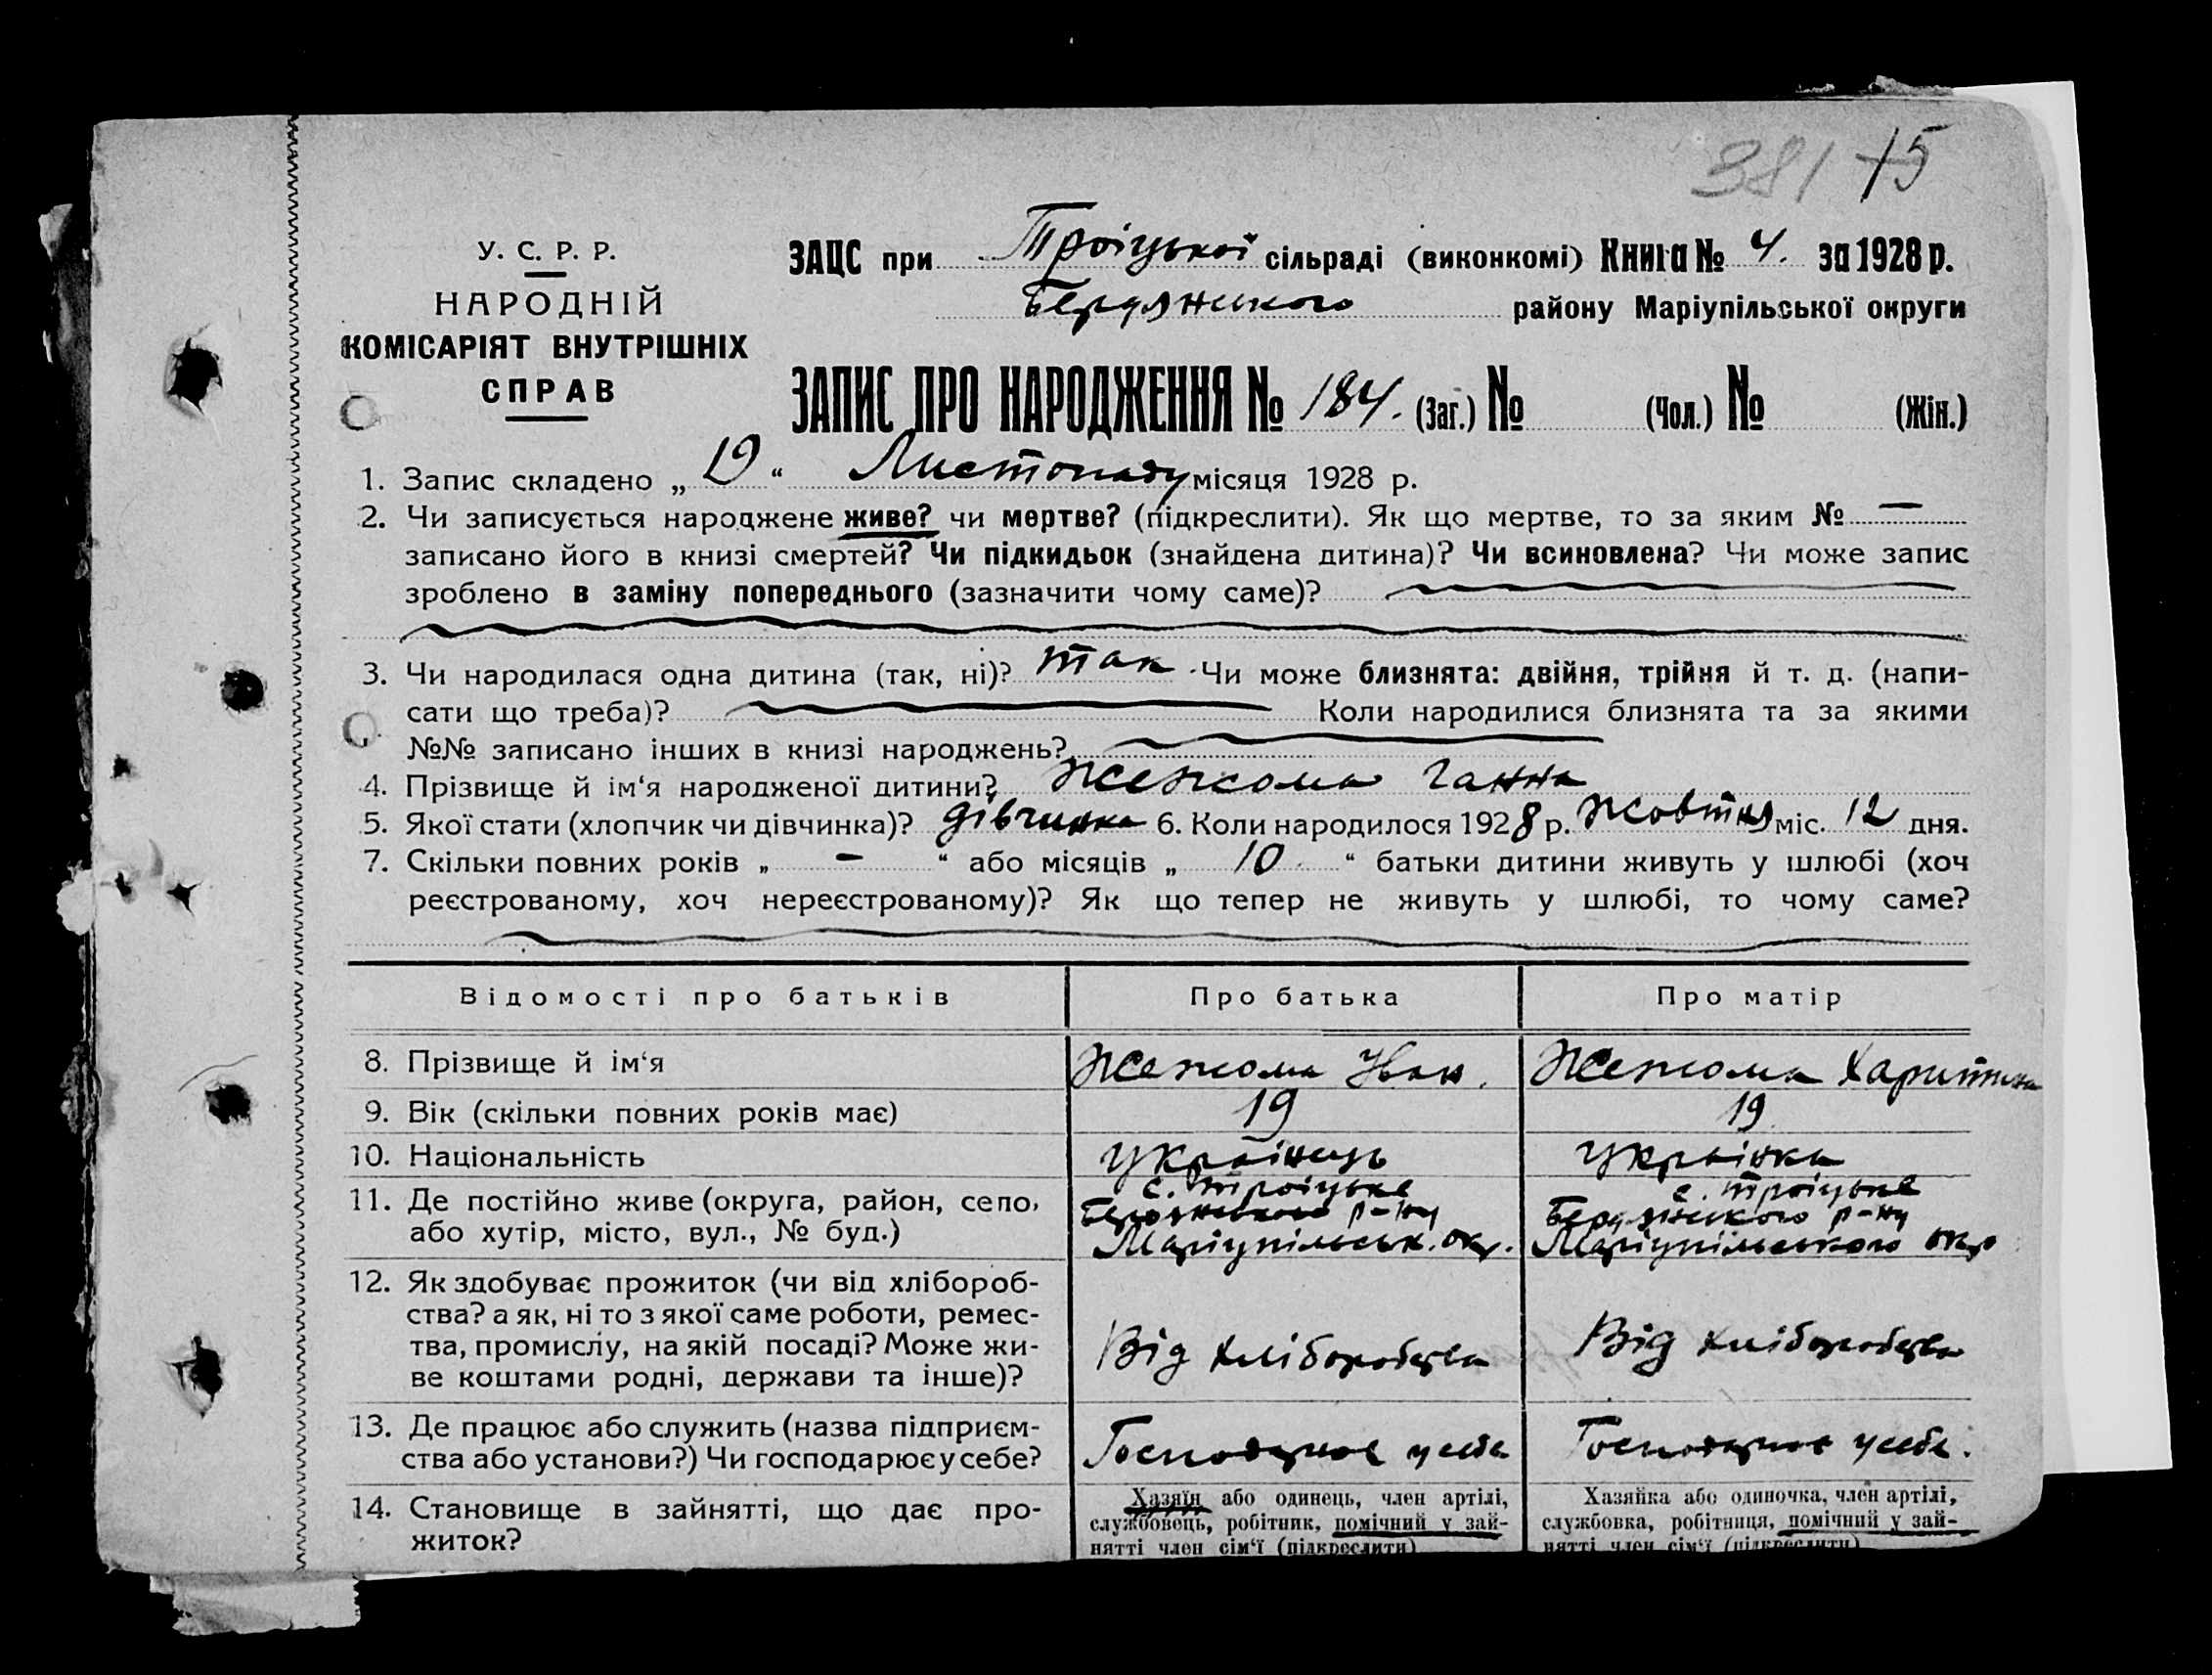 381 15
У. С. Р. Р.
НАРОДНІЙ
КОМІСАРІЯТ ВНУТРІШНІХ
СПРАВ
ЗАЦС при Троіцькоі сільраді (виконкомі) Книга № 4. за 1928 р.
Бердянського району Маріупільської округи
ЗАПИС ПРО НАРОДЖЕННЯ № 184. (Заг.) № (Чол.) № (Жін.)
1. Запис складено „ 19 “ Листопаду місяця 1928 р.
2. Чи записується народжене живе? чи мертве? (підкреслити). Як що мертве, то за яким № —
записано його в книзі смертей? Чи підкидьок (знайдена дитина)? Чи всиновлена? Чи може запис
зроблено в заміну попереднього (зазначити чому саме)?
3. Чи народилася одна дитина (так, ні)? так Чи може близнята: двійня, трійня й т. д. (напи-
сати що треба)? Коли народилися близнята та за якими
№№ записано інших в книзі народжень?
4. Прізвище й ім‘я народженої дитини? Жежома Ганна
5. Якої стати (хлопчик чи дівчинка)? дівчинка 6. Коли народилося 1928 р. Жовтня міс. 12 дня.
7. Скільки повних років „ - “ або місяців „ 10 “ батьки дитини живуть у шлюбі (хоч
реєстрованому, хоч нереєстрованому)? Як що тепер не живуть у шлюбі, то чому саме?
Відомості про батьків Про батька Про матір
8. Прізвище й ім‘я Жежома Іван. Жежома Харитина
9. Вік (скільки повних років має) 19 19
10. Національність Украінець Украінка
11. Де постійно живе (округа, район, село,
або хутір, місто, вул., № буд.)
с. Троіцьке
Бердянського р-ну
Маріупільськ. окр.
с. Троіцьке
Бердянського р-ну
Маріупільського окр
12. Як здобуває прожиток (чи від хлібороб-
ства? а як, ні то з якої саме роботи, ремес-
тва, промислу, на якій посаді? Може жи-
ве коштами родні, держави та інше)?
Від хліборобства
Від хліборобства
13. Де працює або служить (назва підприєм-
ства або установи?) Чи господарює у себе?
Господарює у себе
Господарює у себе.
14. Становище в зайнятті, що дає про-
житок?
Хазяїн або одинець, член артілі,
службовець, робітник, помічний у зай-
нятті член сім‘ї (підкреслити)
Хазяйка або одиночка, член артілі,
службовка, робітниця, помічний у зай-
нятті член сім‘ї (підкреслити)